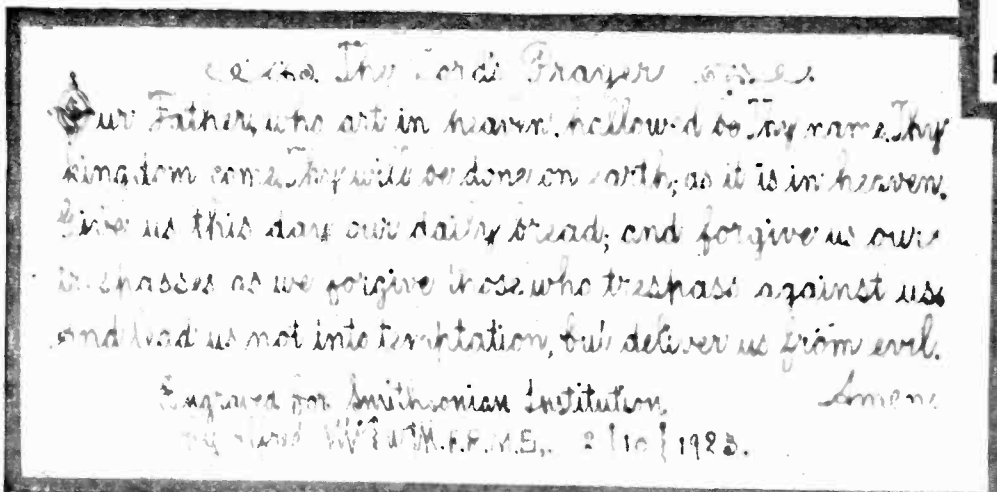 The Lord's Prayer
Our Father, who art in heaven, hallowed be Thy name. Thy
kingdom come. Thy will be done on earth, as it is in heaven.
Give us this day our daily bread; and forgive us our
trespasses as we forgive those who trespass against us.
And lead us not into temptation, but deliver us from evil.
Amen.
Engraved for Smithsonian Institution
F.R.M.S., 2 | 10 | 1923.